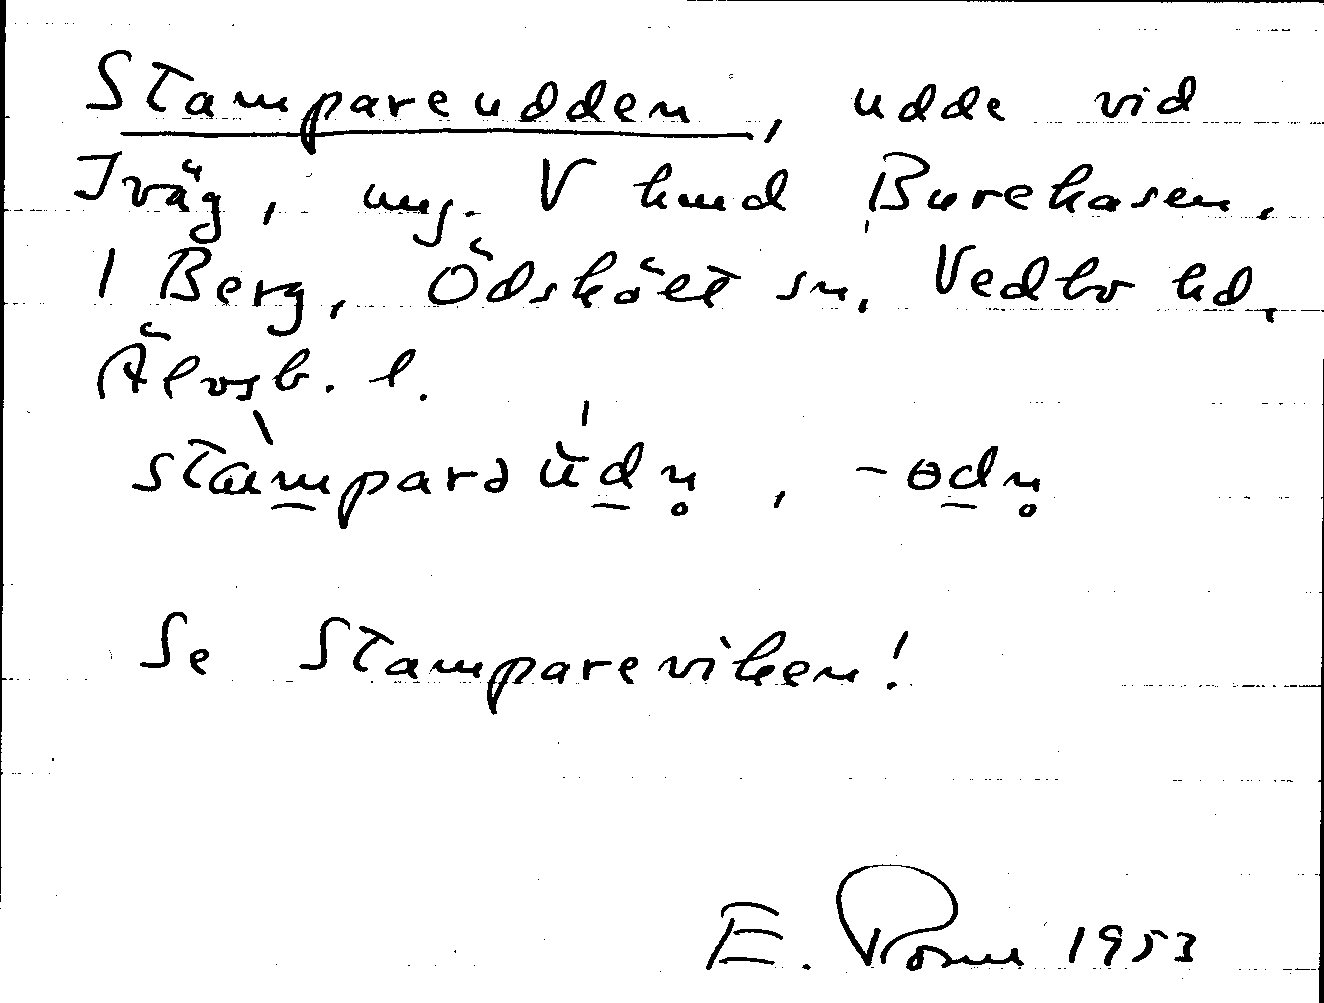 Stampareudden, udde vid
Iväg, ung. V hmd Burehasen.
1 Berg, Ödskölt sn, Vedbo hd,
Älvsb. l.
stamparə ùdn̥, -ɵdn̥
Se Stampareviken!
E. 1953